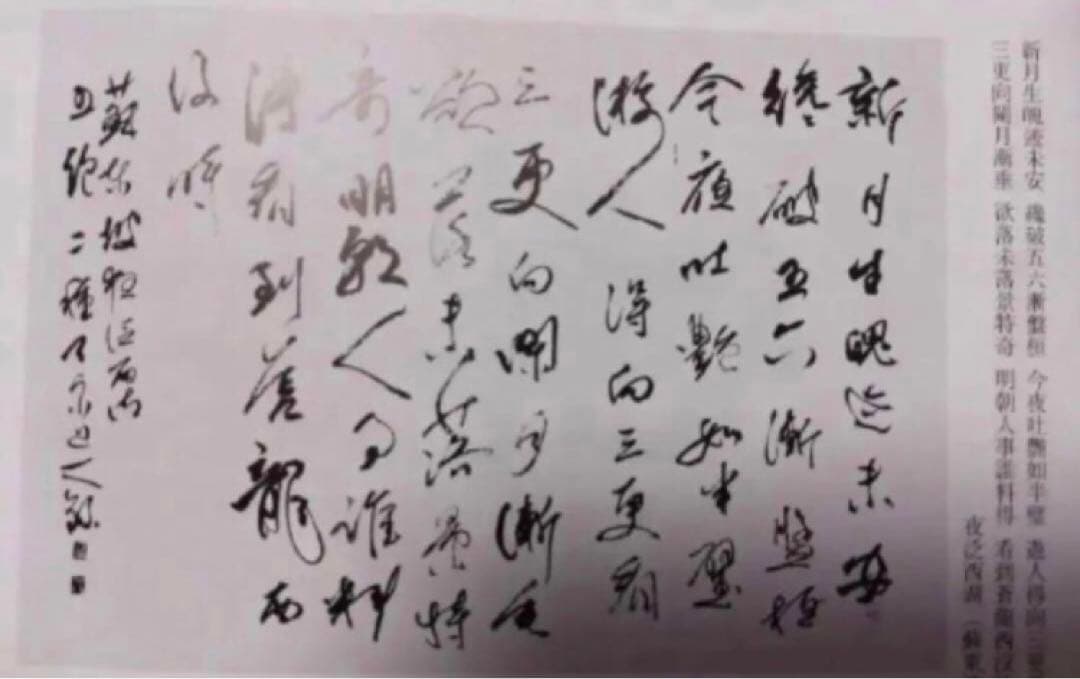 新月生魄迹未安 纔破五六漸盤桓 今夜吐艷如半璧 遊人得向三更
三更向闌月漸垂 欲落未落景特奇 明朝人事誰料得 看到蒼龍西沒
夜泛西湖 (蘇東
新月生魄迹未安
纔破五六漸盤桓
今夜吐艷如半璧
游人得向三更看
三更向闌月漸垂
欲落未落景特
奇明朝人事誰料
得看到蒼龍西
沒時
蘇東坡夜泛西湖
五絕二種